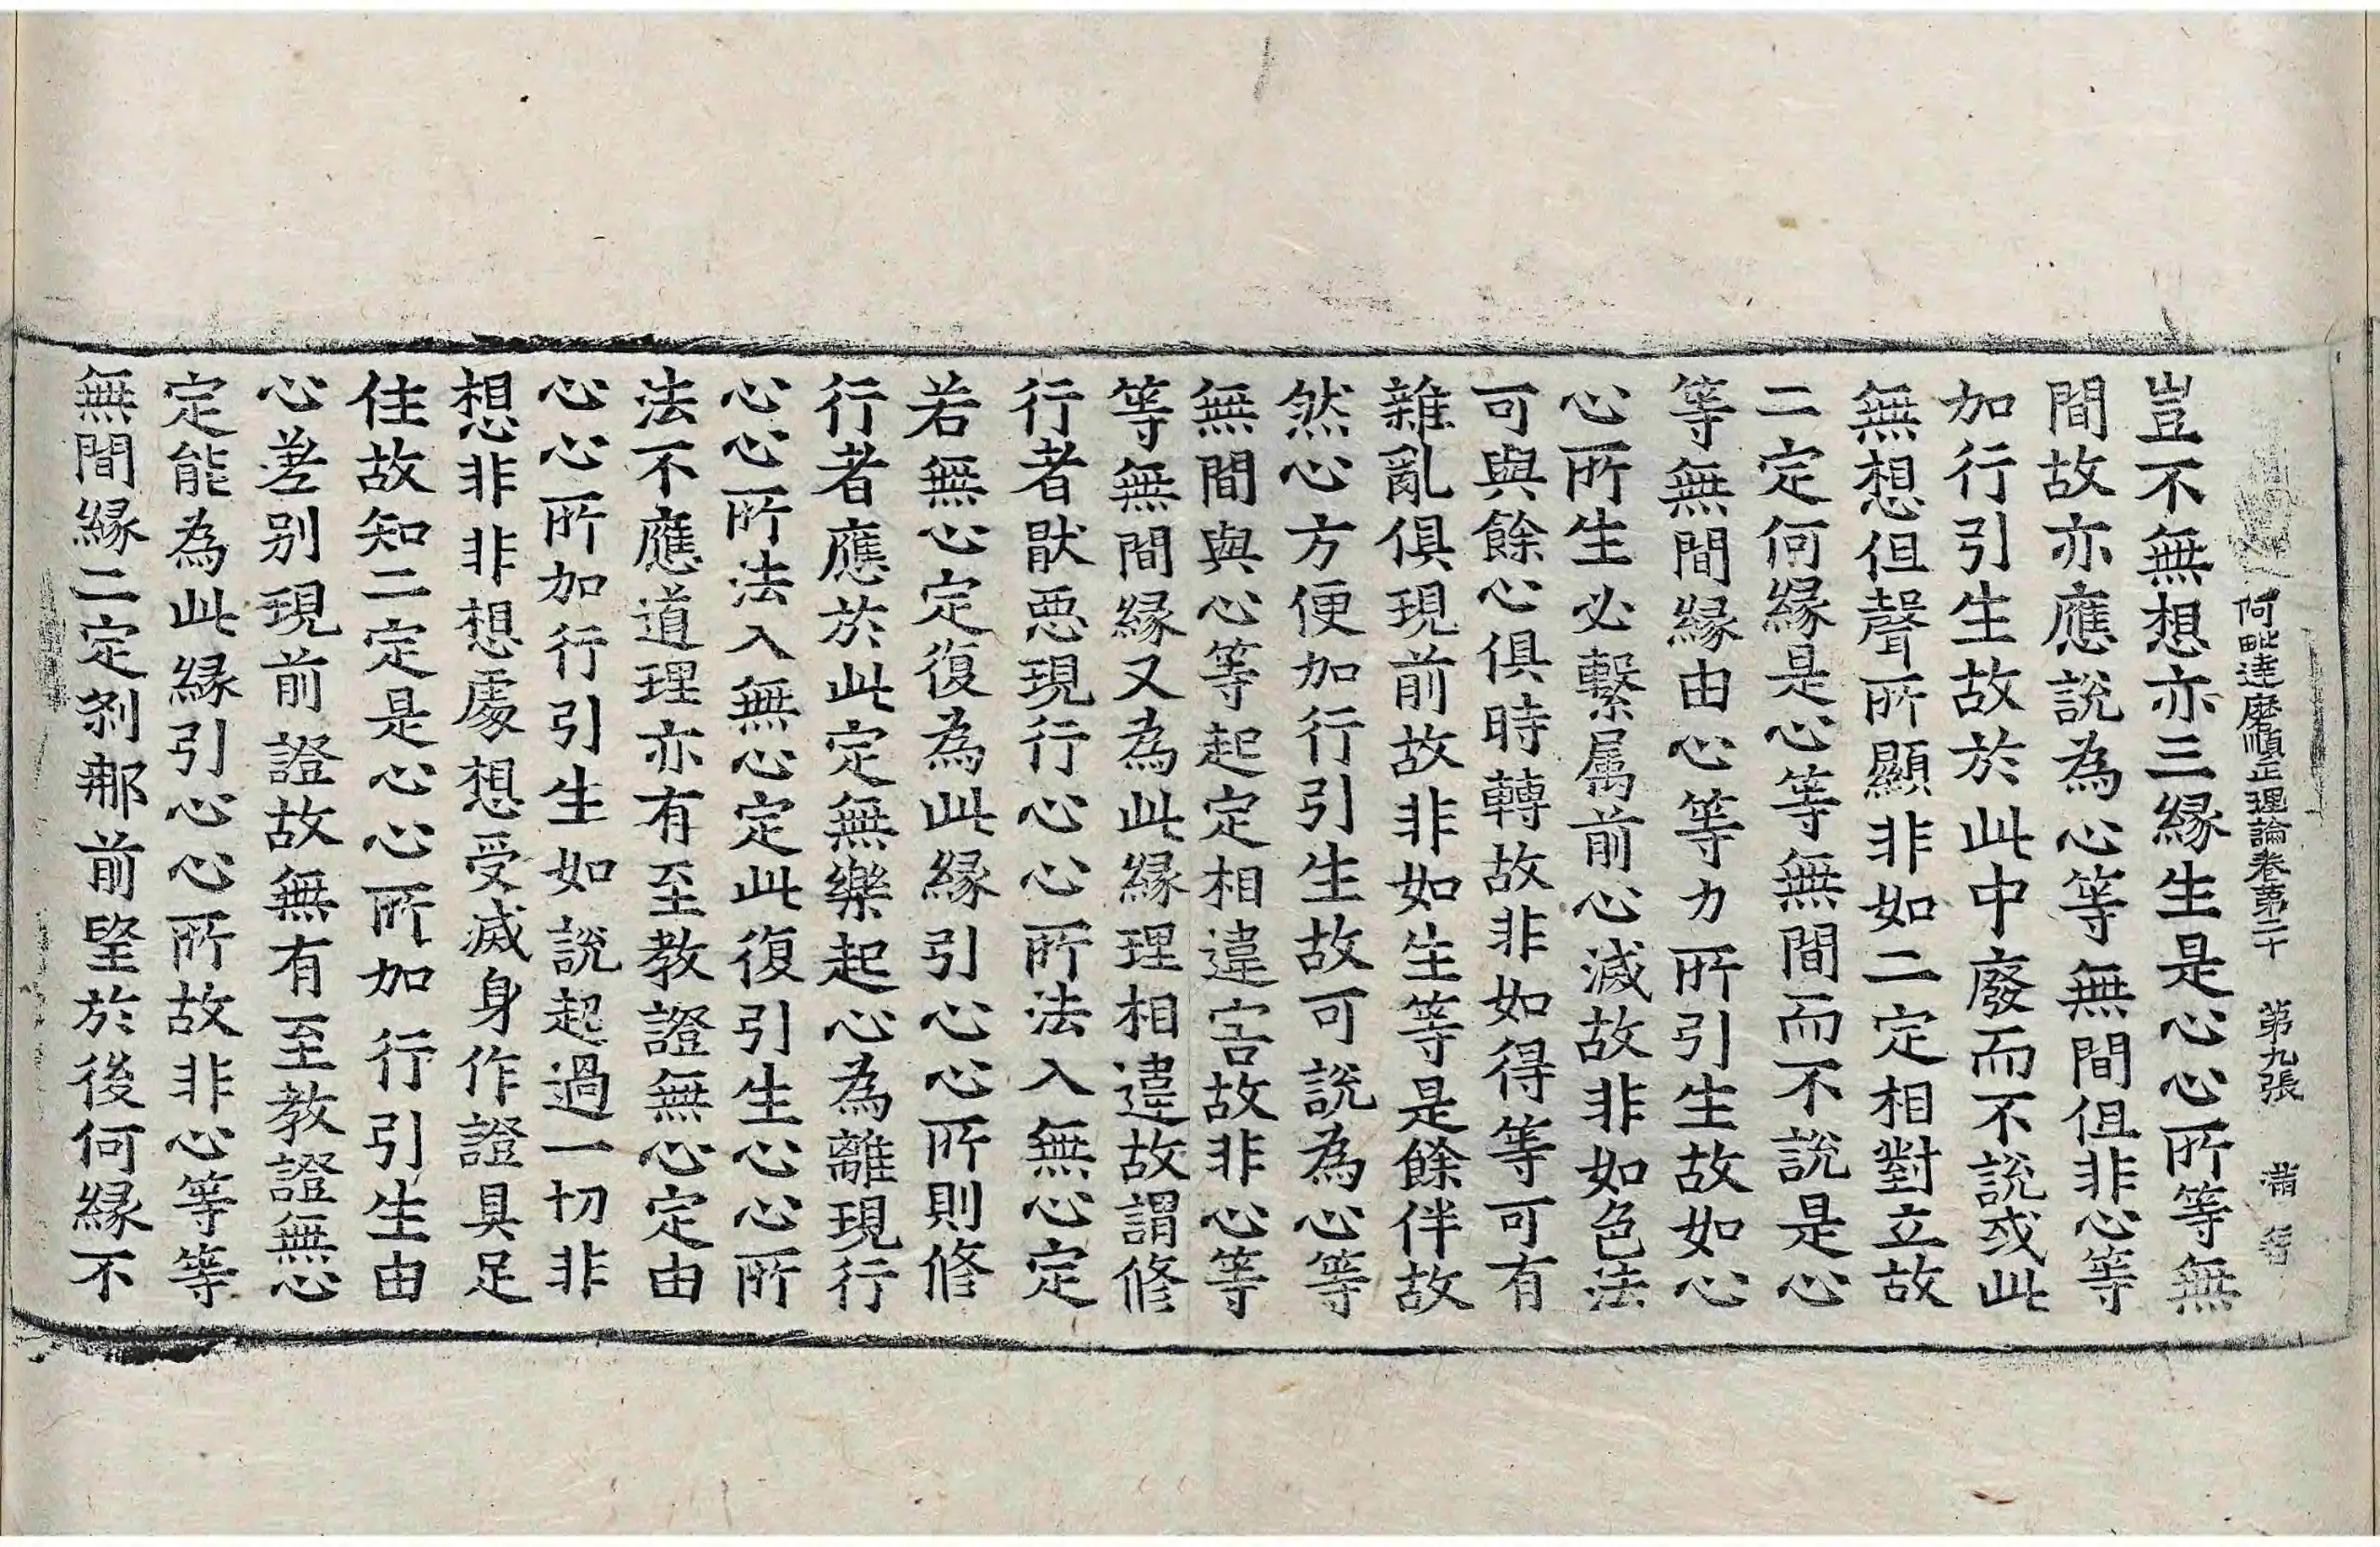 阿毗達磨順正理論卷第二十 第九張 滿
豈不無想亦三緣生是心心所等無
間故亦應說為心等無間但非心等
加行引生故於此中廢而不說或此
無想但聲所顯非如二定相對立故
二定何緣是心等無間而不說是心
等無間緣由心等力所引生故如心
心所生必繫屬前心滅故非如色法
可與餘心俱時轉故非如得等可有
雜亂俱現前故非如生等是餘伴故
然心方便加行引生故可說為心等
無間與心等起定相違害故非心等
等無間緣又為此緣理相違故謂修
行者猒惡現行心心所法入無心定
若無心定復為此緣引心心所則修
行者應於此定無樂起心為離現行
心心所法入無心定此復引生心心所
法不應道理亦有至教證無心定由
心心所加行引生如說超過一切非
想非非想處想受滅身作證具足
住故知二定是心心所加行引生由
心差別現前證故無有至教證無心
定能為此緣引心心所故非心等等
無間緣二定剎那前望於後何緣不